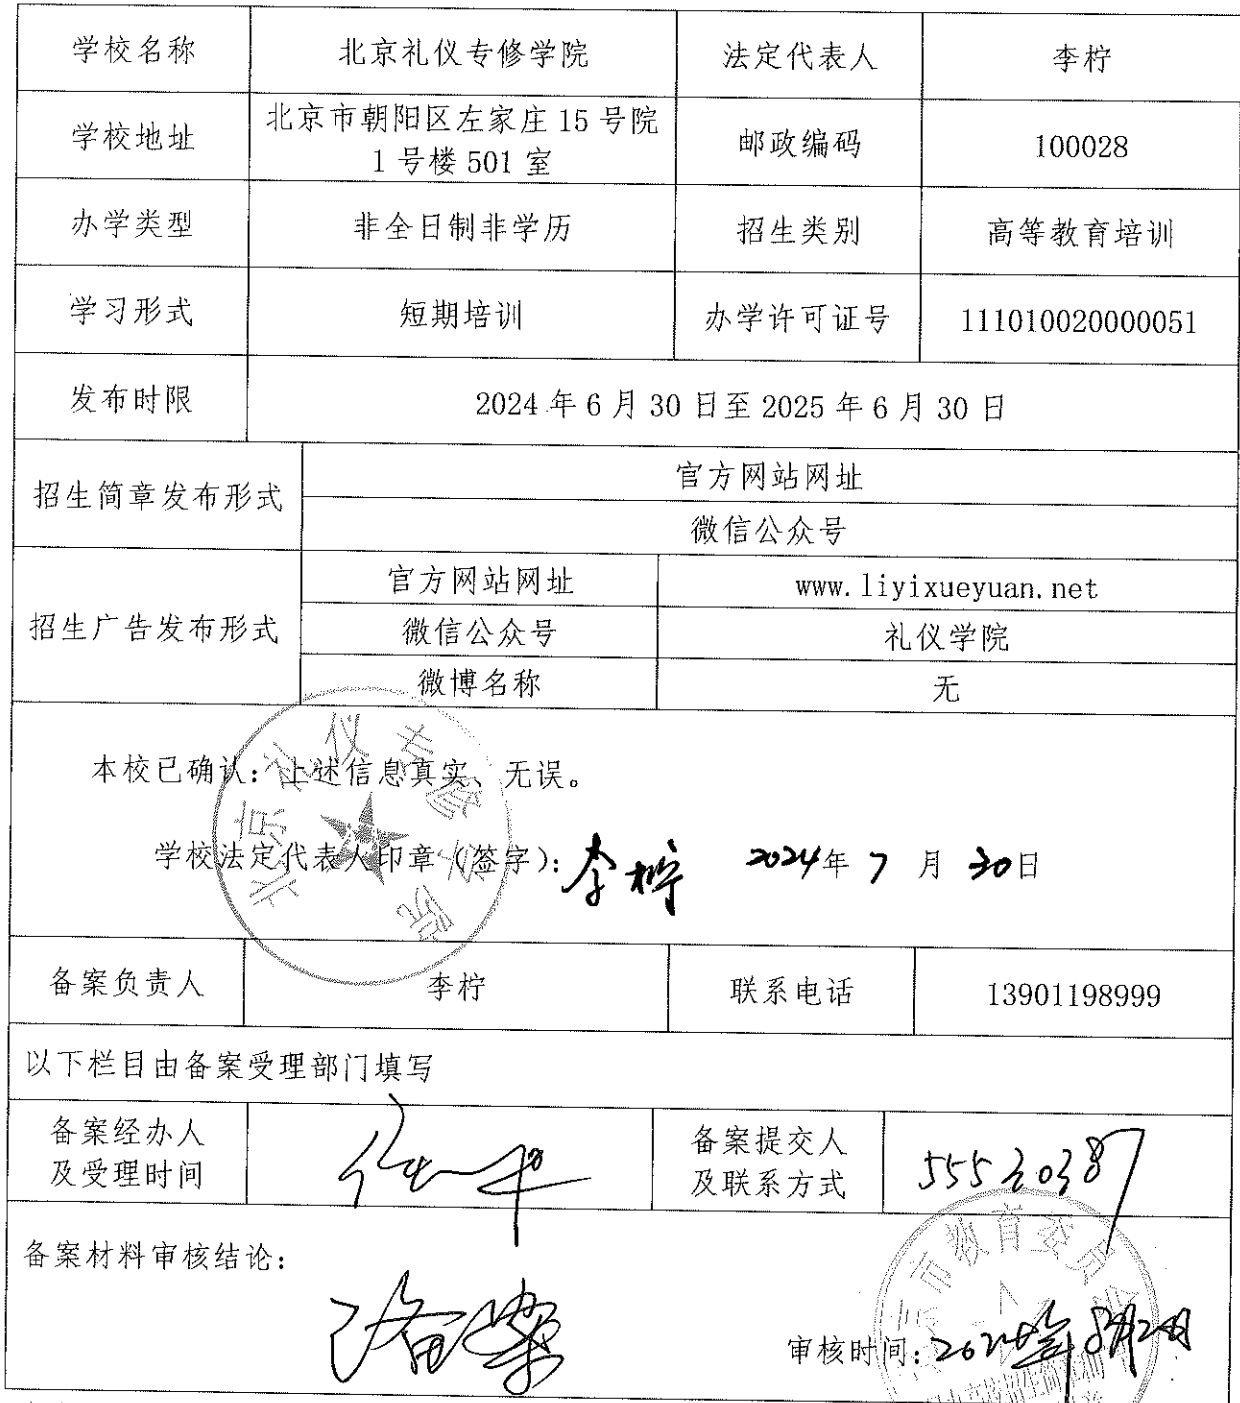 学校名称 北京礼仪专修学院 法定代表人 李柠
学校地址 北京市朝阳区左家庄 15 号院
1 号楼 501 室 邮政编码 100028
办学类型 非全日制非学历 招生类别 高等教育培训
学习形式 短期培训 办学许可证号 111010020000051
发布时限 2024 年 6 月 30 日至 2025 年 6 月 30 日
招生简章发布形式 官方网站网址
微信公众号
招生广告发布形式 官方网站网址 www.liyixueyuan.net
微信公众号 礼仪学院
微博名称 无
本校已确认：上述信息真实、无误。
学校法定代表人印章（签字）：李柠 2024年 7 月 30日
北京礼仪专修学院
备案负责人 李柠 联系电话 13901198999
以下栏目由备案受理部门填写
备案经办人
及受理时间
备案提交人
及联系方式
55530387
备案材料审核结论：
已备案
审核时间：2024年8月2日
京市教育委员会